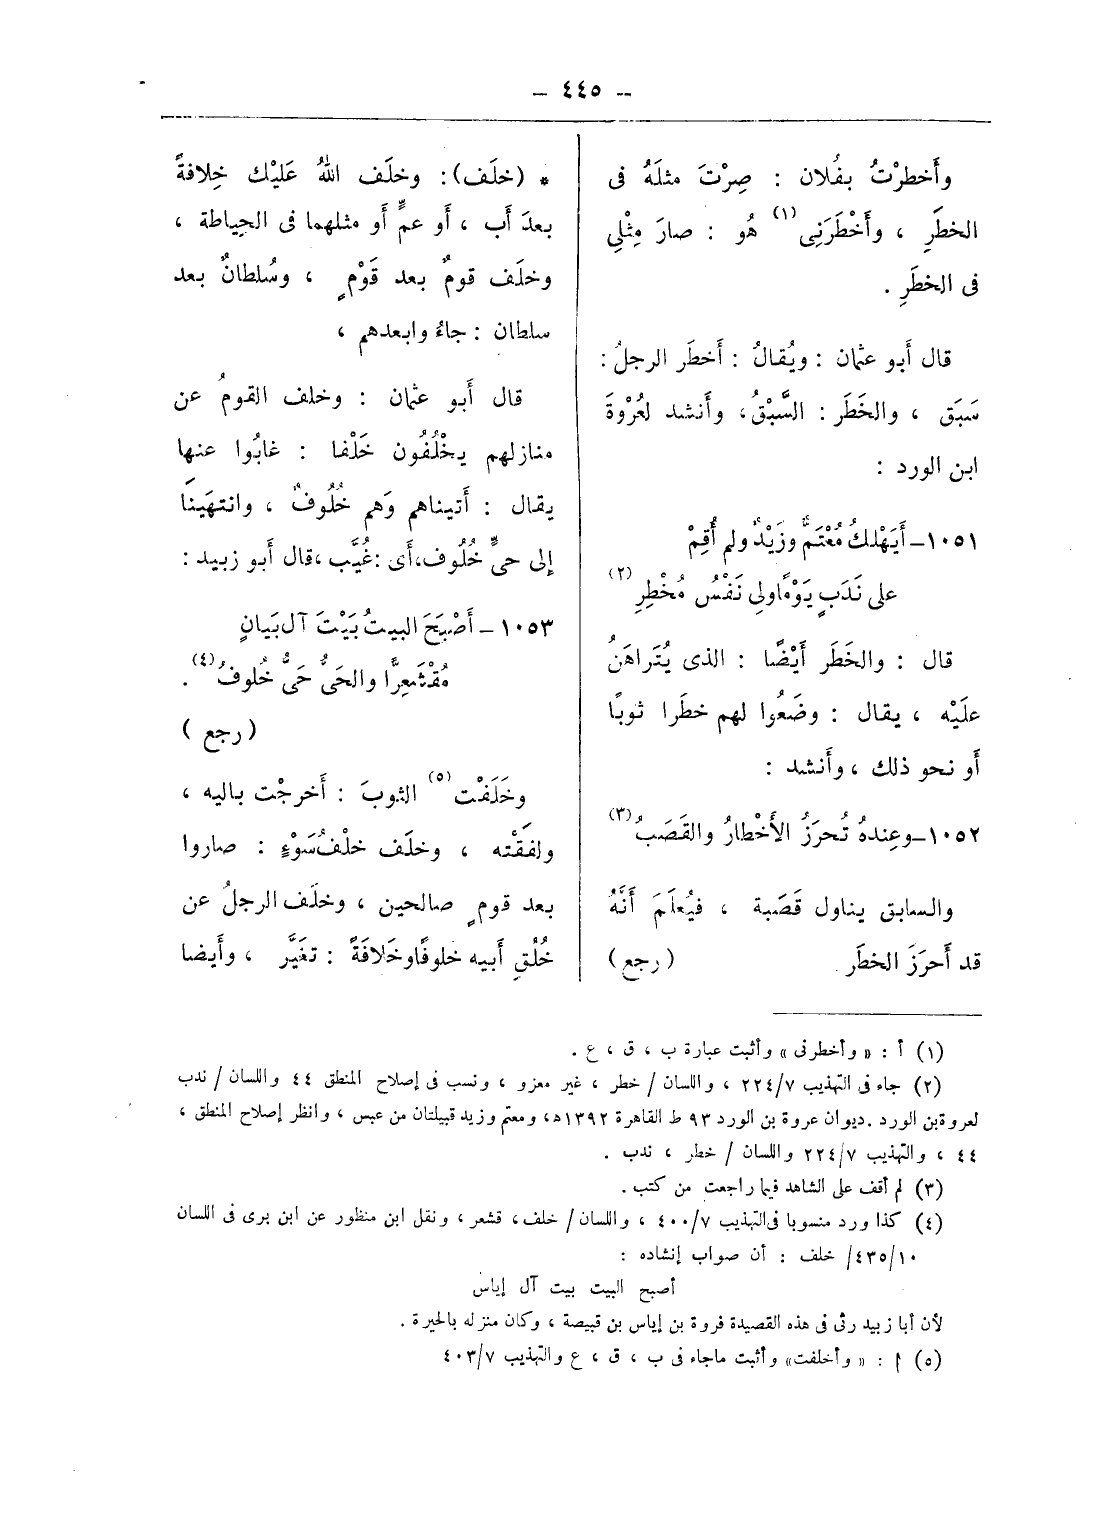 -- ٤٤٥ --
وأَخطرْتُ بفُلان : صِرْتَ مثلَهُ فى
الخطَرِ ، وأَخْطَرَنِى (١) هُو : صارَ مِثْلِي
فى الخطَرِ .
قال أَبو عثمان : ويُقالُ : أَخطَر الرجلُ :
سَبَق ، والخَطَر : السَّبْقُ، وأَنشد لعُرْوَةَ
ابن الورد :
١٠٥١ـ أَيَهْلكُ مُعْتَمٌّ وزَيْدٌ ولم أُقِمْ
على نَدَبٍ يَوْمًا ولِى نَفْسُ مُخْطِرِ (٢)
قال : والخَطَر أَيْضًا : الذى يُتَراهَنُ
علَيْه ، يقال : وضَعُوا لهم خطَرا ثوبًا
أَو نحو ذلك ، وأَنشد :
١٠٥٢ـ وعِندهُ تُحرَزُ الأَخْطارُ والقَصَبُ (٣)
والسابق يناول قَصَبة ، فيُعلَمَ أَنَّهُ
قد أَحرَزَ الخطَر . (رجع)
* (خلَف): وخلَف اللهُ عَلَيْك خِلافةً
بعدَ أَب ، أَو عمٍّ أَو مثلهما فى الحِياطة ،
وخلَف قومٌ بعد قَوْمٍ ، وسُلطانٌ بعد
سلطان : جاءُوا بعدهم ،
قال أَبو عثمان : وخلف القومُ عن
منازلهم يخْلُفُون خَلْفا : غابُوا عنها
يقال : أَتيناهم وَهم خُلُوفٌ ، وانتهَينَا
إلى حىٍّ خُلُوف، أَى : غُيَّب ، قال أَبو زبيد :
١٠٥٣ ـ أَصْبَحَ البيتُ بَيْتَ آل بَيانٍ
مُقْشَعِرًّا والحَىُّ حَىُّ خُلوفُ (٤) .
(رجع)
وخَلَفْت (٥) الثوبَ : أَخرجْت باليه ،
ولفَقْته ، وخلَف خلْفُ سَوْءٍ : صاروا
بعد قومٍ صالحين ، وخلَف الرجلُ عن
خُلُقِ أَبيه خلوفًا وخَلافَةً : تغَيَّر ، وأَيضا
(١) أ : « وأخطرنى » وأثبت عبارة ب ، ق ، ع .
(٢) جاء فى التهذيب ٢٢٤/٧ ، واللسان / خطر ، غير معزو ، ونسب فى إصلاح المنطق ٤٤ واللسان / ندب
لعروة بن الورد . ديوان عروة بن الورد ٩٣ ط القاهرة ١٣٩٢ه، ومعتم وزيد قبيلتان من عبس ، وانظر إصلاح المنطق ،
٤٤ ، والتهذيب ٢٢٤/٧ واللسان / خطر ، ندب .
(٣) لم أقف على الشاهد فيما راجعت من كتب .
(٤) كذا ورد منسوبا فى التهذيب ٤٠٠/٧ ، واللسان / خلف، قشعر ، ونقل ابن منظور عن ابن برى فى اللسان
٤٣٥/١٠/ خلف : أن صواب إنشاده :
أصبح البيت بيت آل إياس
لأن أبا زبيد رثى فى هذه القصيدة فروة بن إياس بن قبيصة ، وكان منزله بالحيرة .
(٥) أ : « وأخلفت» وأثبت ماجاء فى ب ، ق ، ع والتهذيب ٤٠٣/٧